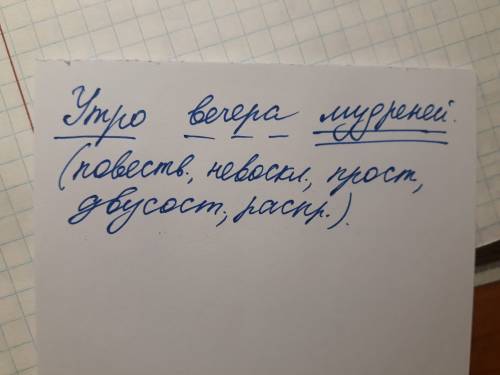 Утро вечера мудреней.
(повеств., невоскл., прост,
двусост., распр.).